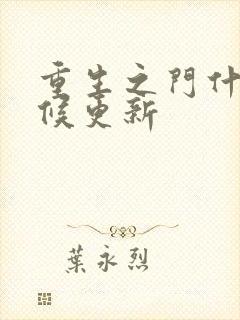 重生之門什
候更新
葉永烈